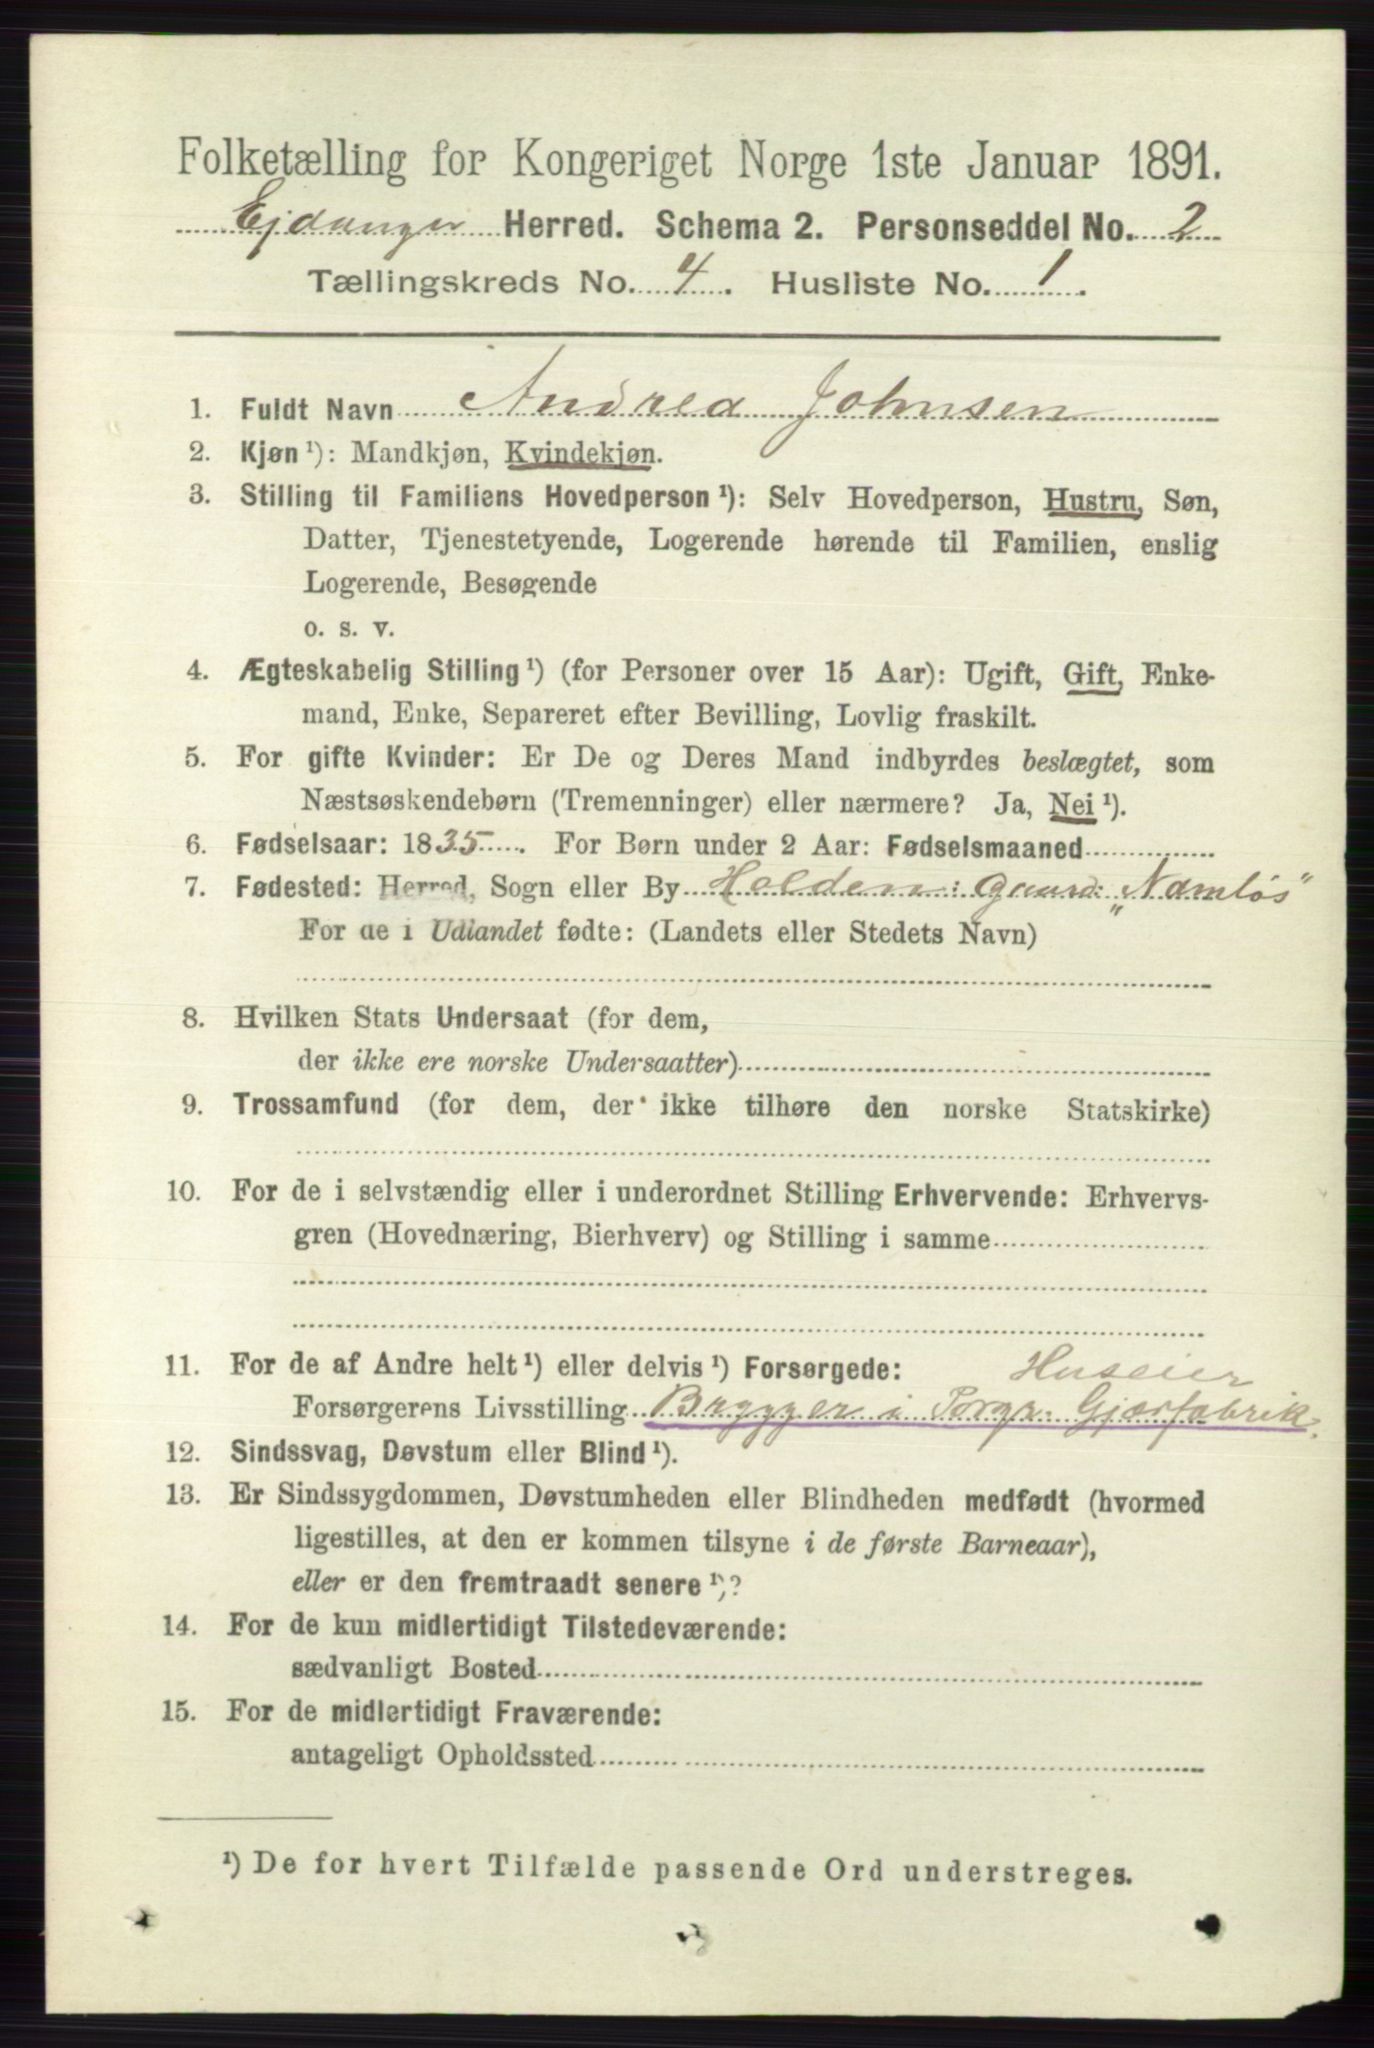 Folketælling for Kongeriget Norge 1ste Januar 1891.
Ejdanger Herred. Schema 2. Personseddel No. 2
Tællingskreds No. 4. Husliste No. 1.
1. Fuldt Navn Andrea Johnsen
2. Kjøn ¹): Mandkjøn, Kvindekjøn.
3. Stilling til Familiens Hovedperson ¹): Selv Hovedperson, Hustru, Søn,
Datter, Tjenestetyende, Logerende hørende til Familien, enslig
Logerende, Besøgende
o. s. v.
4. Ægteskabelig Stilling ¹) (for Personer over 15 Aar): Ugift, Gift, Enke-
mand, Enke, Separeret efter Bevilling, Lovlig fraskilt.
5. For gifte Kvinder: Er De og Deres Mand indbyrdes beslægtet, som
Næstsøskendebørn (Tremenninger) eller nærmere? Ja, Nei ¹).
6. Fødselsaar: 1835. For Børn under 2 Aar: Fødselsmaaned
7. Fødested: Herred, Sogn eller By Holden: Gaard: „Namløs"
For de i Udlandet fødte: (Landets eller Stedets Navn)
8. Hvilken Stats Undersaat (for dem,
der ikke ere norske Undersaatter)
9. Trossamfund (for dem, der ikke tilhøre den norske Statskirke)
10. For de i selvstændig eller i underordnet Stilling Erhvervende: Erhvervs-
gren (Hovednæring, Bierhverv) og Stilling i samme
11. For de af Andre helt ¹) eller delvis ¹) Forsørgede: Huseier
Forsørgerens Livsstilling Brygger i Porgr. Gjærfabrik.
12. Sindssvag, Døvstum eller Blind ¹).
13. Er Sindssygdommen, Døvstumheden eller Blindheden medfødt (hvormed
ligestilles, at den er kommen tilsyne i de første Barneaar),
eller er den fremtraadt senere ¹)?
14. For de kun midlertidigt Tilstedeværende:
sædvanligt Bosted
15. For de midlertidigt Fraværende:
antageligt Opholdssted
¹) De for hvert Tilfælde passende Ord understreges.